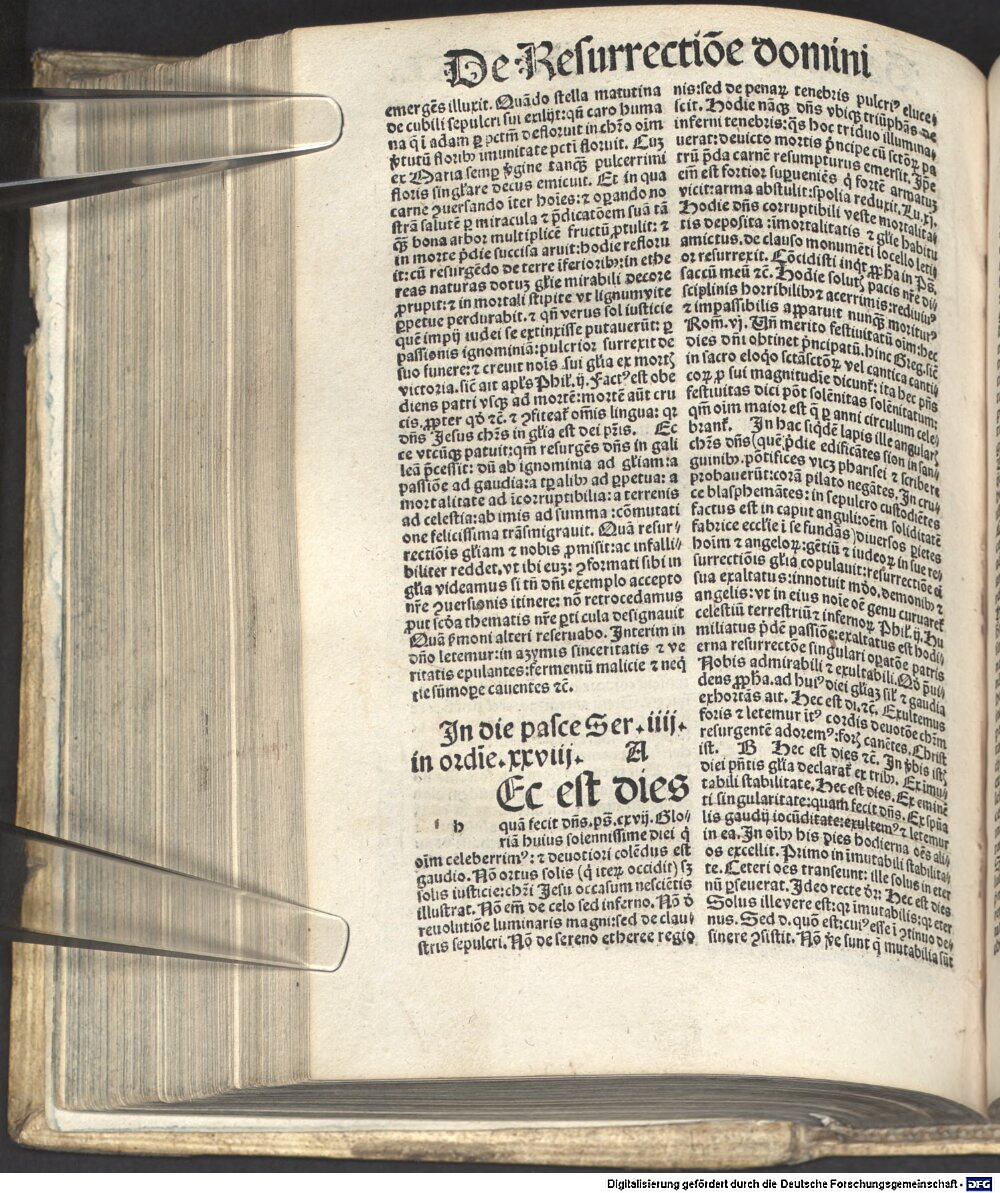 De Resurrectiõe domini
emergẽs illuxit. Quãdo stella matutina
de cubili sepulcri sui exilijt: qñ caro huma
na q̃ ĩ adam ꝑ pctm̃ defloruit in chr̃o oĩm
ꝟtutũ floribꝰ ĩmunitate pcti floruit. Cuꝫ
ex Maria semꝑ ꝟgine tanqꝫ pulcerrimi
floris singl̃are decus emicuit. Et in qua
carne ꝯuersando iter hoĩes: ⁊ oꝑando no
strã salutẽ ꝑ miracula ⁊ p̃dicatõem suã tã
q̃ꝫ bona arbor multiplicẽ fructũ ꝓtulit: ⁊
in morte p̃die succisa aruit: hodie refloru
it: cũ resurgẽdo de terre ĩferioribꝫ: in ethe
reas naturas dotuꝫ gl̃ie mirabili decore
ꝓrupit: ⁊ in mortali stipite vt lignum vite
ꝑpetue perdurabit. ⁊ qñ verus sol iusticie
quẽ impij iudei se extinxisse putauerũt: ꝑ
passionis ignominiã: pulcrior surrexit de
suo funere: ⁊ creuit noĩs sui gl̃ia ex mortꝭ
victoria. sic̃ ait apl̃s Phil̃. ij. Factꝰ est obe
diens patri vsqꝫ ad mortẽ: mortẽ aũt cru
cis. ꝓpter qđ ⁊c̃. ⁊ ꝯfiteat̃ om̃is lingua: qꝛ
dñs Jesus chr̃s in gl̃ia est dei pr̃is. Ec
ce vtcũqꝫ patuit: qm̃ resurgẽs dñs in gali
leã p̃cessit: dũ ab ignominia ad gl̃iam: a
passiõe ad gaudia: a tꝑalibꝫ ad ꝑpetua: a
mortalitate ad ĩcorruptibilia: a terrenis
ad celestia: ab imis ad summa: cõmutati
one felicissima trãsmigrauit. Quã resur⸗
rectiõis gl̃iam ⁊ nobis ꝓmisit: ac infalli⸗
biliter reddet. vt ibi euꝫ: ꝯformati sibi in
gl̃ia videamus si tñ dñi exemplo accepto
nr̃e ꝯuersionis itinere: nõ retrocedamus
ꝓut scđa thematis nr̃e ꝑticula designauit
Quã ẜmoni alteri reseruabo. Interim in
dño letemur: in azymis sinceritatis ⁊ ve
ritatis epulantes: fermentũ malicie ⁊ neq̃
tie sũmoꝑe cauentes ⁊c̃.
In die pasce Ser. iiij.
in ordĩe. xxviij. A
Ec est dies
h quã fecit dñs. ps̃. cxvij. Glo⸗
riã huius solennissime diei q̃
oĩm celeberrimꝰ: ⁊ deuotiori colẽdus est
gaudio. Nõ ortus solis (q̃ iterꝫ occidit) sꝫ
solis iusticie: chr̃i Jesu occasum nesciẽtis
illustrat. Nõ em̃ de celo sed inferno. Nõ đ
reuolutiõe luminaris magni: sed de clau⸗
stris sepulcri. Nõ de sereno etheree regio
nis: sed de penaꝝ tenebris pulcriꝰ eluce⸗
scit. Hodie nãqꝫ dñs vbiqꝫ triũphãs de
inferni tenebris: q̃s hoc triduo illumina⸗
uerat: deuicto mortis p̃ncipe cũ sctõꝝ pa
trũ p̃da carnẽ resumpturus emersit. Ipe
em̃ est fortior suꝑueniẽs q̃ fortẽ armatuꝫ
vicit: arma abstulit: spolia reduxit. Lu. xj.
Hodie dñs corruptibili veste mortalita⸗
tis deposita: ĩmortalitatis ⁊ gl̃ie habitu
amictus. de clauso monumẽti locello leti⸗
or resurrexit. Cõcidisti inq̃t ꝓph̃a in Ps̃.
saccũ meũ ⁊c̃. Hodie solutꝭ pacis nr̃e di⸗
sciplinis horribilibꝫ ⁊ acerrimis: rediuiuꝰ
⁊ impassibilis apparuit nunqꝫ moriturꝰ
Rom̃. vj. Uñ merito festiuitatũ oĩm: hec
dies dñi obtinet p̃ncipatũ. hinc Greg. sic̃
in sacro eloq̃o sctãsctõꝝ vel cantica canti⸗
coꝝ ꝓ sui magnitudie dicunt̃: ita hec p̃ñs
festiuitas dici põt solẽnitas solẽnitatum:
qm̃ oĩm maior est q̃ ꝑ anni circulum cele⸗
brant̃. In hac siq̃dẽ lapis ille angularꝭ
chr̃s dñs (quẽ p̃die edificãtes sion in san⸗
guinibꝫ. põtifices vicꝫ pharisei ⁊ scribe re
probauerũt: corã pilato negãtes. In cru⸗
ce blasphemãtes: in sepulcro custodiẽtes
factus est in caput anguli: oẽm soliditatẽ
fabrice eccl̃ie ĩ se fundãs) diuersos ꝑietes
hoĩm ⁊ angeloꝝ: gẽtiũ ⁊ iudeoꝝ in sue re⸗
surrectiõis gl̃ia copulauit: resurrectiõe ei
sua exaltatus: innotuit mđo. demonibꝫ ⁊
angelis: vt in eius noĩe oẽ genu curuaret̃
celestiũ terrestriũ ⁊ infernoꝝ. Phil̃. ij. Hu
miliatus p̃dẽ passiõe: exaltatus est hodi⸗
erna resurrectõe singulari oꝑatõe patris
Nobis admirabili ⁊ exultabili. Qđ p̃ui⸗
dens ꝓph̃a. ad huiꝰ diei gl̃iaꝫ sil̃ ⁊ gaudia
exhortãs ait. Hec est di. ⁊c̃. Exultemus
foris ⁊ letemur itꝰ cordis deuotõe chr̃m
resurgentẽ adoremꝰ: forꝭ canẽtes. Christ
ist. B Hec est dies ⁊c̃. In ꝟbis istꝭ
diei p̃ntis gl̃ia declarat̃ ex tribꝫ. Ex imu⸗
tabili stabilitate. Hec est dies. Ex eminẽ
ti singularitate: quam fecit dñs. Ex spũa
lis gaudij iocũditate: exultemꝰ ⁊ letemur
in ea. In oĩbꝫ his dies hodierna oẽs ali⸗
os excellit. Primo in ĩmutabili stabilita⸗
te. Ceteri oẽs transeunt: ille solus in eter
nũ ꝑseuerat. Ideo recte dr̃: Hec est dies
Solus ille vere est: qꝛ ĩmutabilis: qꝛ eter
nus. Sed đ. quõ est: cuiꝰ esse ĩ ꝯtinuo de⸗
sinere ꝯsistit. Nõ ꝟe sunt q̃ mutabilia sũt
Digitalisierung gefördert durch die Deutsche Forschungsgemeinschaft - DFG